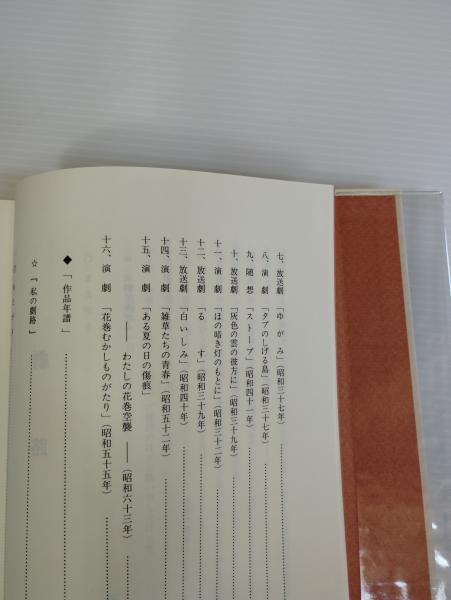 七、放送劇 「ゆがみ」（昭和三十七年）
八、演劇 「タブのしげる島」（昭和三十七年）
九、随想 「ストーブ」（昭和四十一年）
十、放送劇 「灰色の雲の彼方に」（昭和三十九年）
十一、演劇 「ほの暗き灯のもとに」（昭和三十二年）
十二、放送劇 「るす」（昭和三十九年）
十三、放送劇 「白いしみ」（昭和四十年）
十四、演劇 「雑草たちの青春」（昭和五十二年）
十五、演劇 「ある夏の日の傷痕」
―― わたしの花巻空襲 ――（昭和六十三年）
十六、演劇 「花巻むかしものがたり」（昭和五十五年）
◆「作品年譜」
☆『私の劇路』